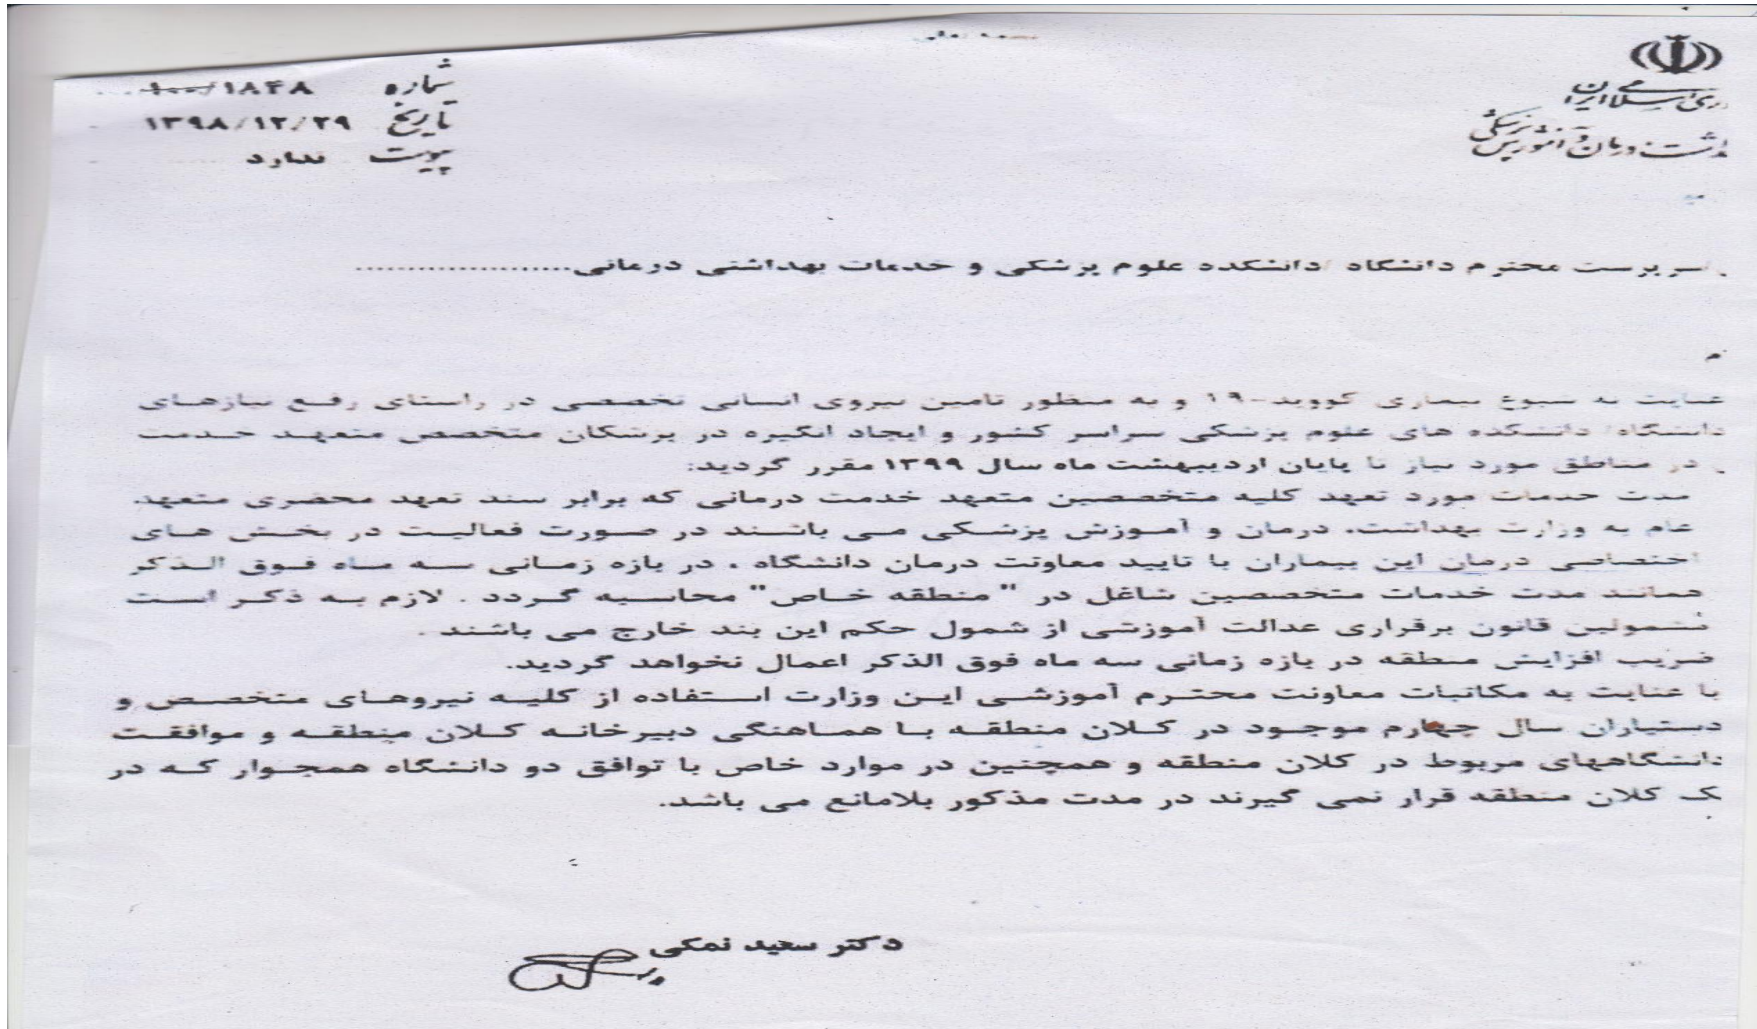 شماره ۱۰۰/۱۸۴۸
تاریخ ۱۳۹۸/۱۲/۲۹
پیوست ندارد
سرپرست محترم دانشگاه /دانشکده علوم پزشکی و خدمات بهداشتی درمانی.....................
عنایت به شیوع بیماری کووید-۱۹ و به منظور تامین نیروی انسانی تخصصی در راستای رفع نیازهای
دانشگاه/ دانشکده های علوم پزشکی سراسر کشور و ایجاد انگیزه در پزشکان متخصص متعهد خدمت
در مناطق مورد نیاز تا پایان اردیبهشت ماه سال ۱۳۹۹ مقرر گردید:
مدت خدمات مورد تعهد کلیه متخصصین متعهد خدمت درمانی که برابر سند تعهد محضری متعهد
عام به وزارت بهداشت، درمان و آموزش پزشکی می باشند در صورت فعالیت در بخش های
اختصاصی درمان این بیماران با تایید معاونت درمان دانشگاه ، در بازه زمانی سه ماه فوق الذکر
همانند مدت خدمات متخصصین شاغل در " منطقه خاص" محاسبه گردد . لازم به ذکر است
مشمولین قانون برقراری عدالت آموزشی از شمول حکم این بند خارج می باشند .
ضریب افزایش منطقه در بازه زمانی سه ماه فوق الذکر اعمال نخواهد گردید.
با عنایت به مکاتبات معاونت محترم آموزشی این وزارت استفاده از کلیه نیروهای متخصص و
دستیاران سال چهارم موجود در کلان منطقه با هماهنگی دبیرخانه کلان منطقه و موافقت
دانشگاههای مربوط در کلان منطقه و همچنین در موارد خاص با توافق دو دانشگاه همجوار که در
یک کلان منطقه قرار نمی گیرند در مدت مذکور بلامانع می باشد.
دکتر سعید نمکی